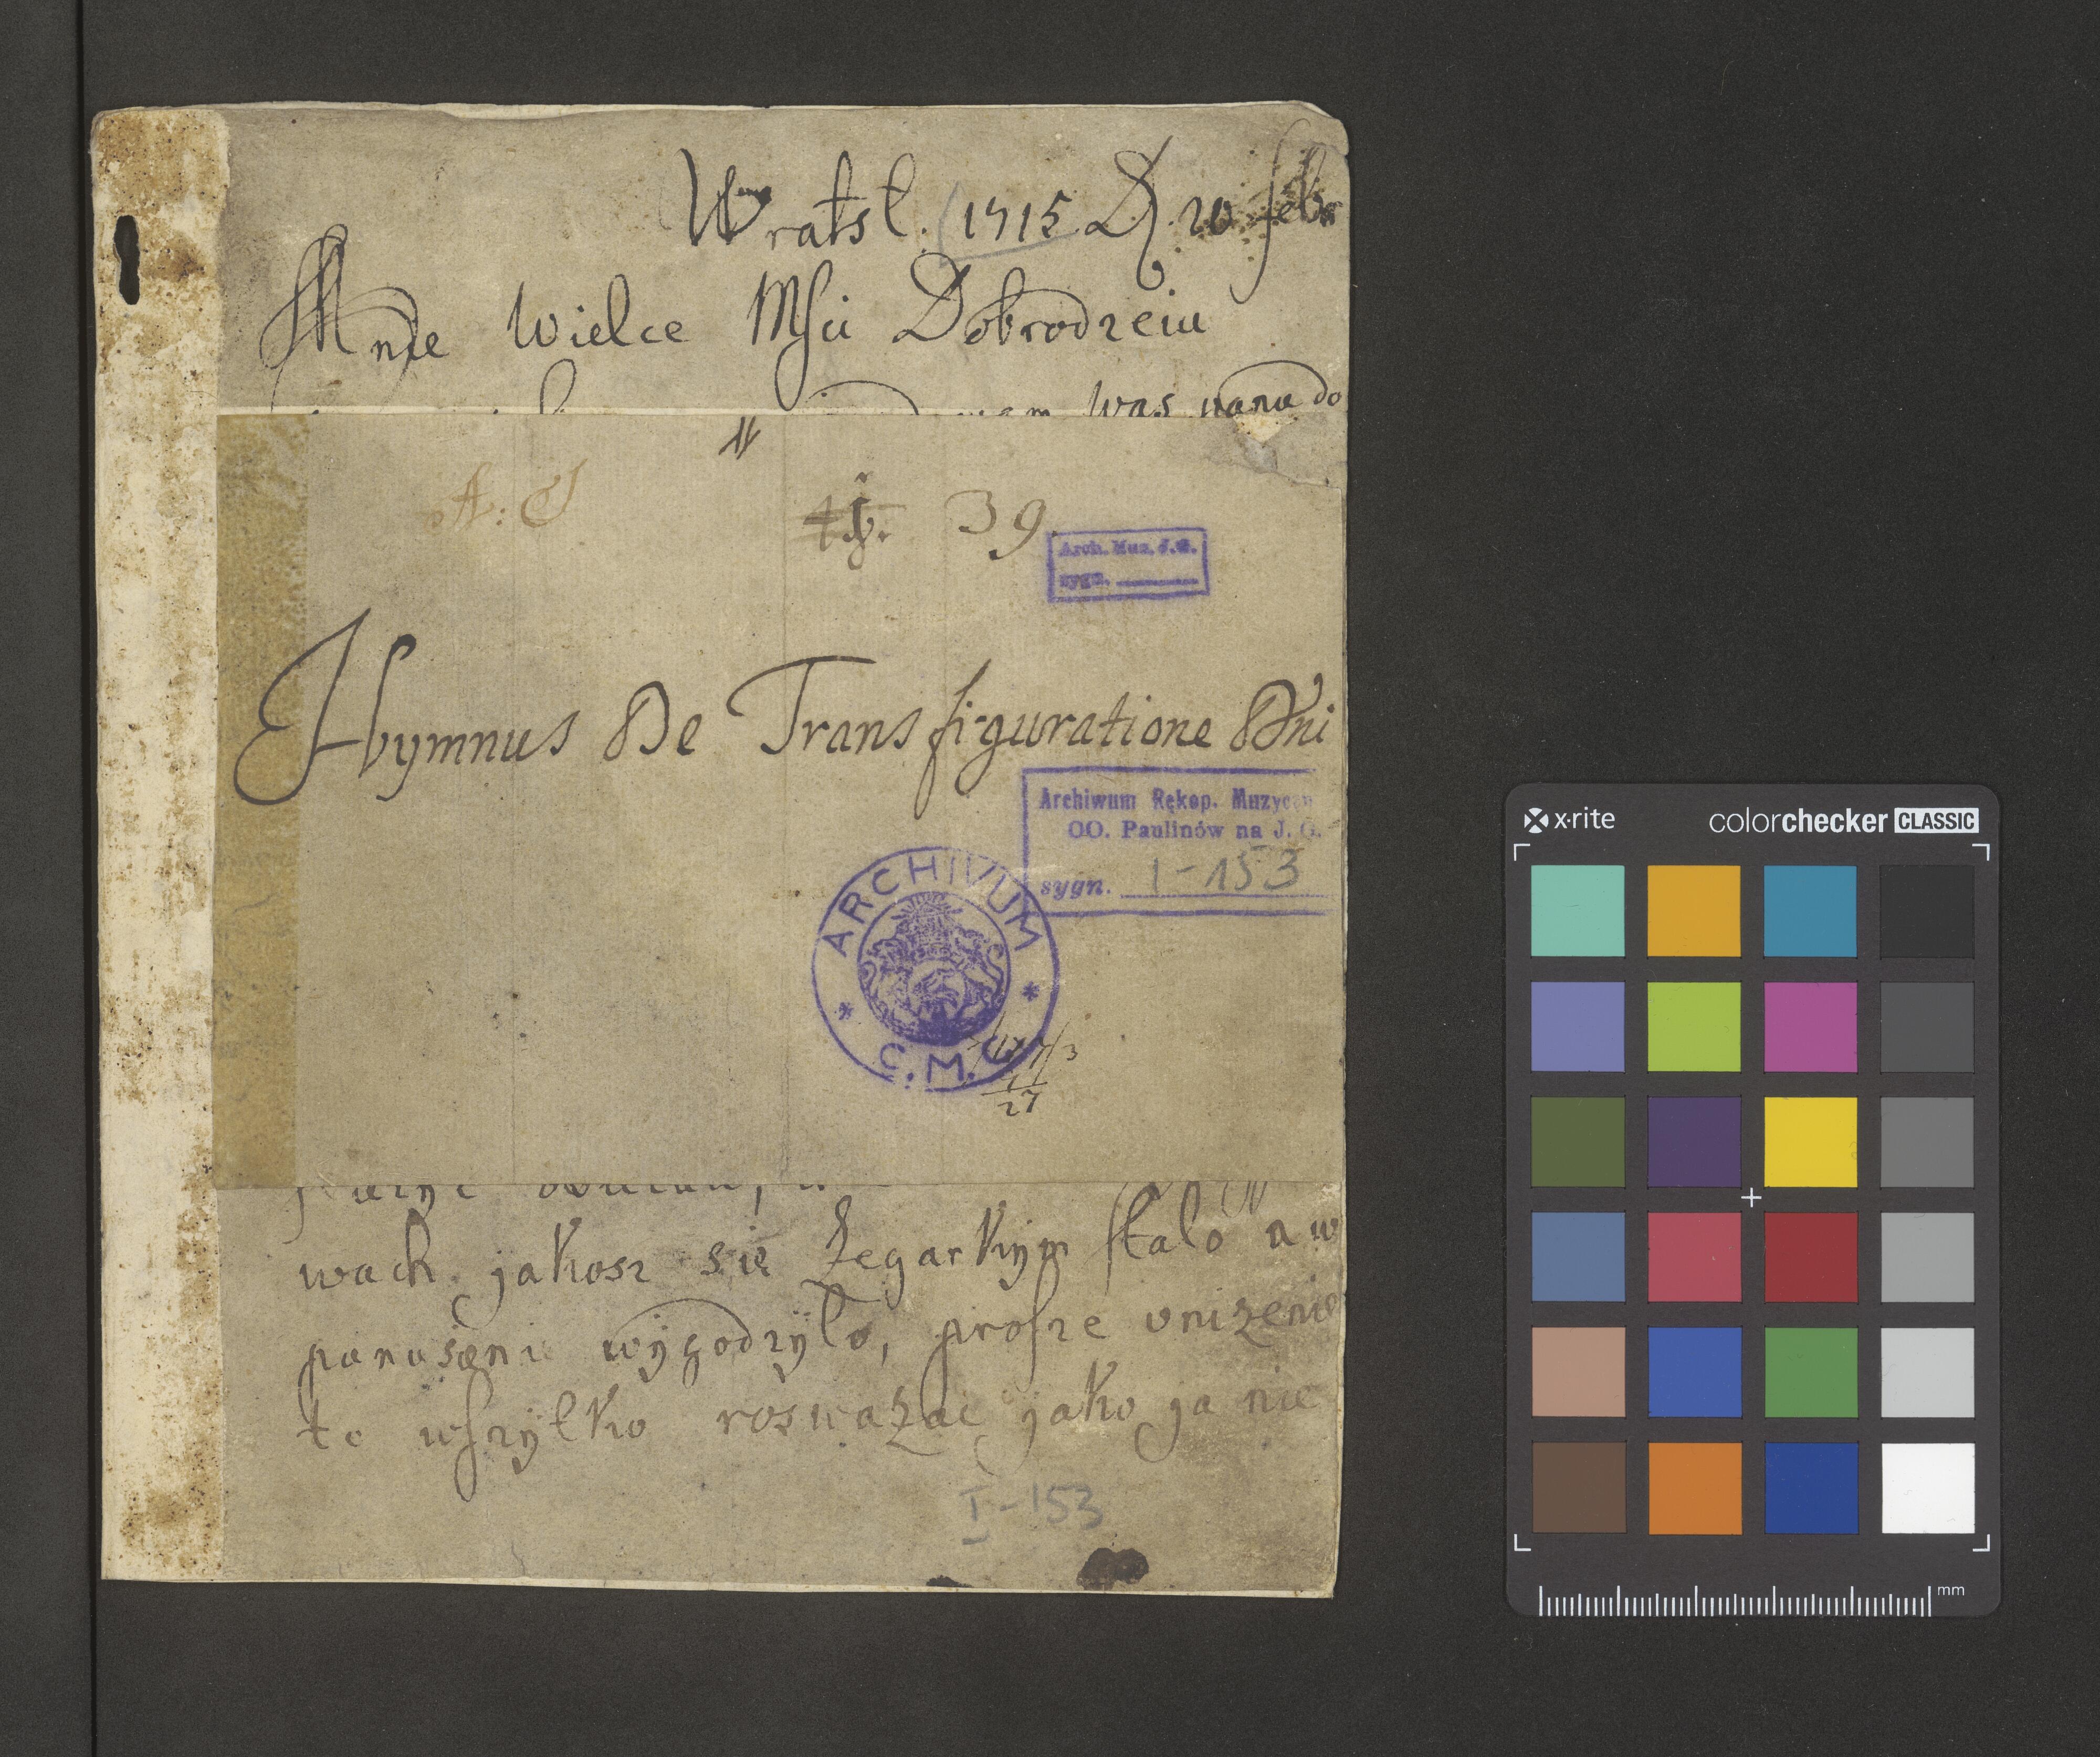 Wratsl. (1715 D. 20 febr
Mnie Wielce Msci Dobrodzeiu
was vanu do
N
A: S
39
Arch. Muz. J.G.
sygn.
Hymnus De Transfiguratione Dni
Archiwum Rękop. Muzyczn
OO. Paulinów na J. G.
sygn. I-153
ARCHIVUM
C. M. C.
27
wach jakosz się Zegarkiym stalo a w
panu wygodzyło, prosze unizenie
to wszytko roswazac jako ja nie
I-153
x·rite colorchecker CLASSIC
mm